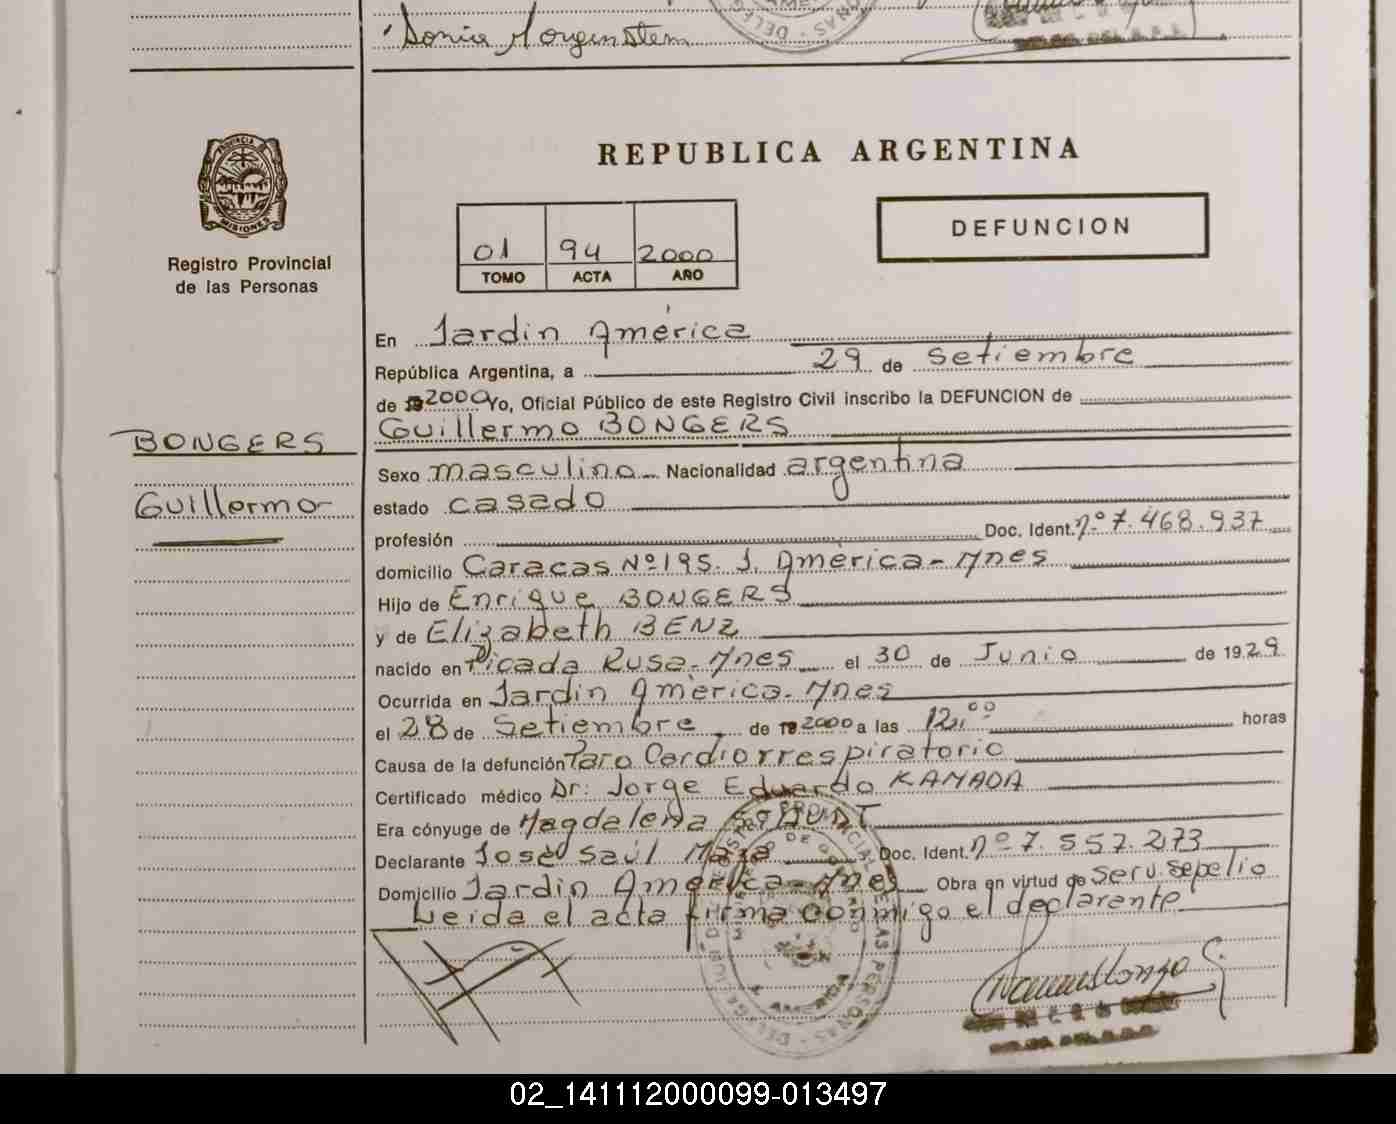 Sonia Morgenstern
REPUBLICA ARGENTINA
PROVINCIA DE
MISIONES
Registro Provincial
de las Personas
DEFUNCION
01 94 2000
TOMO ACTA AÑO
En Jardin América
República Argentina, a 29 de Setiembre
de 2000 Yo, Oficial Público de este Registro Civil inscribo la DEFUNCION de
Guillermo BONGERS
BONGERS
Guillermo
Sexo masculino Nacionalidad argentina
estado casado
profesión Doc. Ident. nº 7.468.937
domicilio Caracas Nº 195. J. América - Mnes
Hijo de Enrique BONGERS
y de Elizabeth BENZ
nacido en Picada Rusa - Mnes el 30 de Junio de 1929
Ocurrida en Jardin América - Mnes
el 28 de Setiembre de 2000 a las 12,00 horas
Causa de la defunción Paro Cardiorrespiratorio
Certificado médico Dr: Jorge Eduardo KAMADA
Era cónyuge de Magdalena
Declarante José Saúl Doc. Ident. nº 7.557.273
Domicilio Jardin América - Mnes Obra en virtud de Serv. Sepelio
Leida el acta firma conmigo el declarante
J. AMERICA
02_141112000099-013497